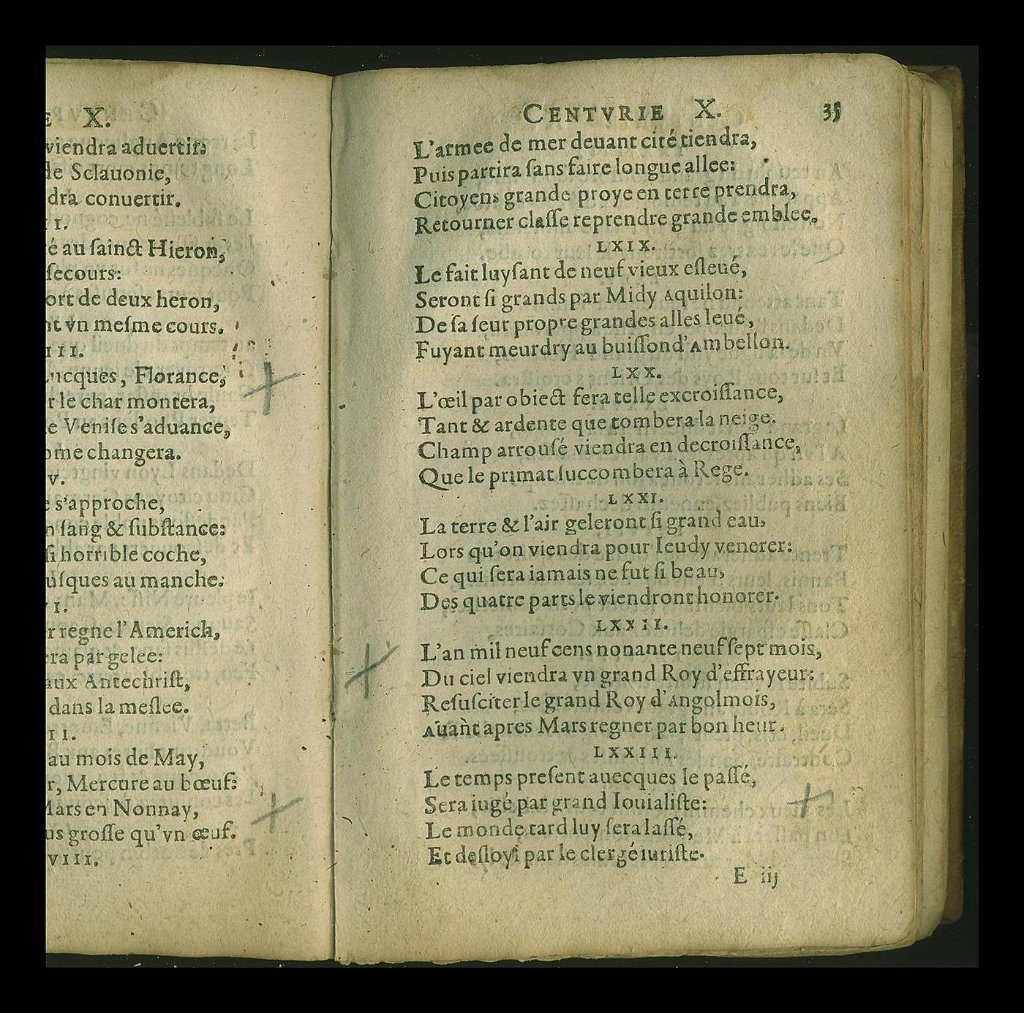 X.
viendra aduertir:
de Sclauonie,
dra conuertir.
II.
é au ſainct Hieron,
ſecours:
ort de deux heron,
nt vn meſme cours.
III.
Lucques, Florance,
r le char montera,
e Veniſe s'aduance,
ome changera.
V.
e s'approche,
n ſang & ſubſtance:
ſi horrible coche,
uſques au manche:
VI.
r regne l'Americh,
ra par gelee:
aux Antechriſt,
dans la meſlee.
II.
au mois de May,
r, Mercure au bœuf:
Mars en Nonnay,
us groſſe qu'vn œuf.
VIII.
CENTVRIE X. 35
L'armee de mer deuant cité tiendra,
Puis partira ſans faire longue allee:
Citoyens grande proye en terre prendra,
Retourner claſſe reprendre grande emblee.
LXIX.
Le fait luyſant de neuf vieux eſleué,
Seront ſi grands par Midy Aquilon:
De ſa ſeur propre grandes alles leué,
Fuyant meurdry au buiſſon d'Ambellon.
LXX.
L'œil par obiect fera telle excroiſſance,
Tant & ardente que tombera la neige.
Champ arrouſé viendra en decroiſſance,
Que le primat ſuccombera à Rege.
LXXI.
La terre & l'air geleront ſi grand eau,
Lors qu'on viendra pour Ieudy venerer:
Ce qui ſera iamais ne fut ſi beau,
Des quatre parts le viendront honorer.
LXXII.
L'an mil neuf cens nonante neuf ſept mois,
Du ciel viendra vn grand Roy d'effrayeur:
Reſuſciter le grand Roy d'Angolmois,
Auant apres Mars regner par bon heur.
LXXIII.
Le temps preſent auecques le paſſé,
Sera iugé par grand Iouialiſte:
Le monde tard luy ſera laſſé,
Et deſloyſ par le clergé iuriſte.
E iij